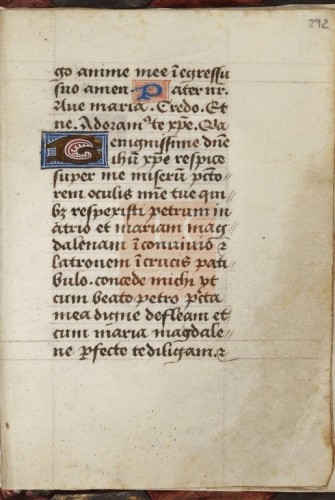 292
go anime mee ī egressu
suo amen. Pater nr̄.
Aue maria. Credo. Et
ne. Adoramꝰ te xp̄e.
enignissime dn̄e
ihū xp̄e respice
super me miserū pctō
rem oculis mīe tue qui
bꝫ respexisti petrum in
atrio et mariam mag
dalenam ī conuiuio ⁊
latronem ī crucis pati
bulo. concede michi vt
cum beato petro pctā
mea digne defleam et
cum maria magdale
ne ꝑfecto te diligam. ⁊